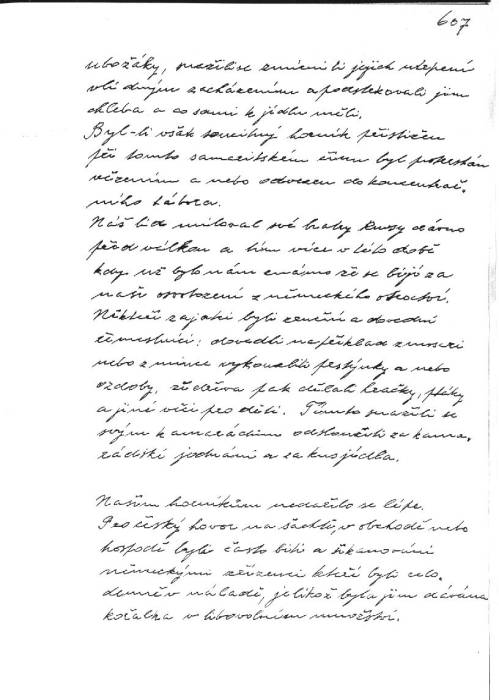 607
ubožáky, snažili se zmírniti jejich utrpení
vlídným zacházením a podstrkovali jim
chleba a co sami k jídlu měli.
Byl-li však soucitný horník přistižen
při tomto samaritském činu byl potrestán
vězením a nebo odvezen do koncentrač-
ního tábora.
Náš lid miloval své braty Rusy dávno
před válkou a tím více v této době
kdy už bylo nám známo že se bijí za
naši osvobození z německého otroctví.
Někteří zajatci byli zruční a dovední
řemeslníci: dovedli na příklad z mosazi
nebo z mince vykouzliti prstýnky a nebo
ozdoby, ze dřeva pak dělali hračky, ptáky
a jiné věci pro děti. Tímto snažili se
svým kamarádům odsloužiti za kama-
rádské jednání a za kus jídla.
Našim horníkům nedařilo se lépe.
Pro český hovor na šachtě, v obchodě nebo
hospodě byli často biti a šikanováni
německými zřízenci kteří byli celo-
denně v náladě, jelikož byla jim dávána
kořalka v libovolním množství.